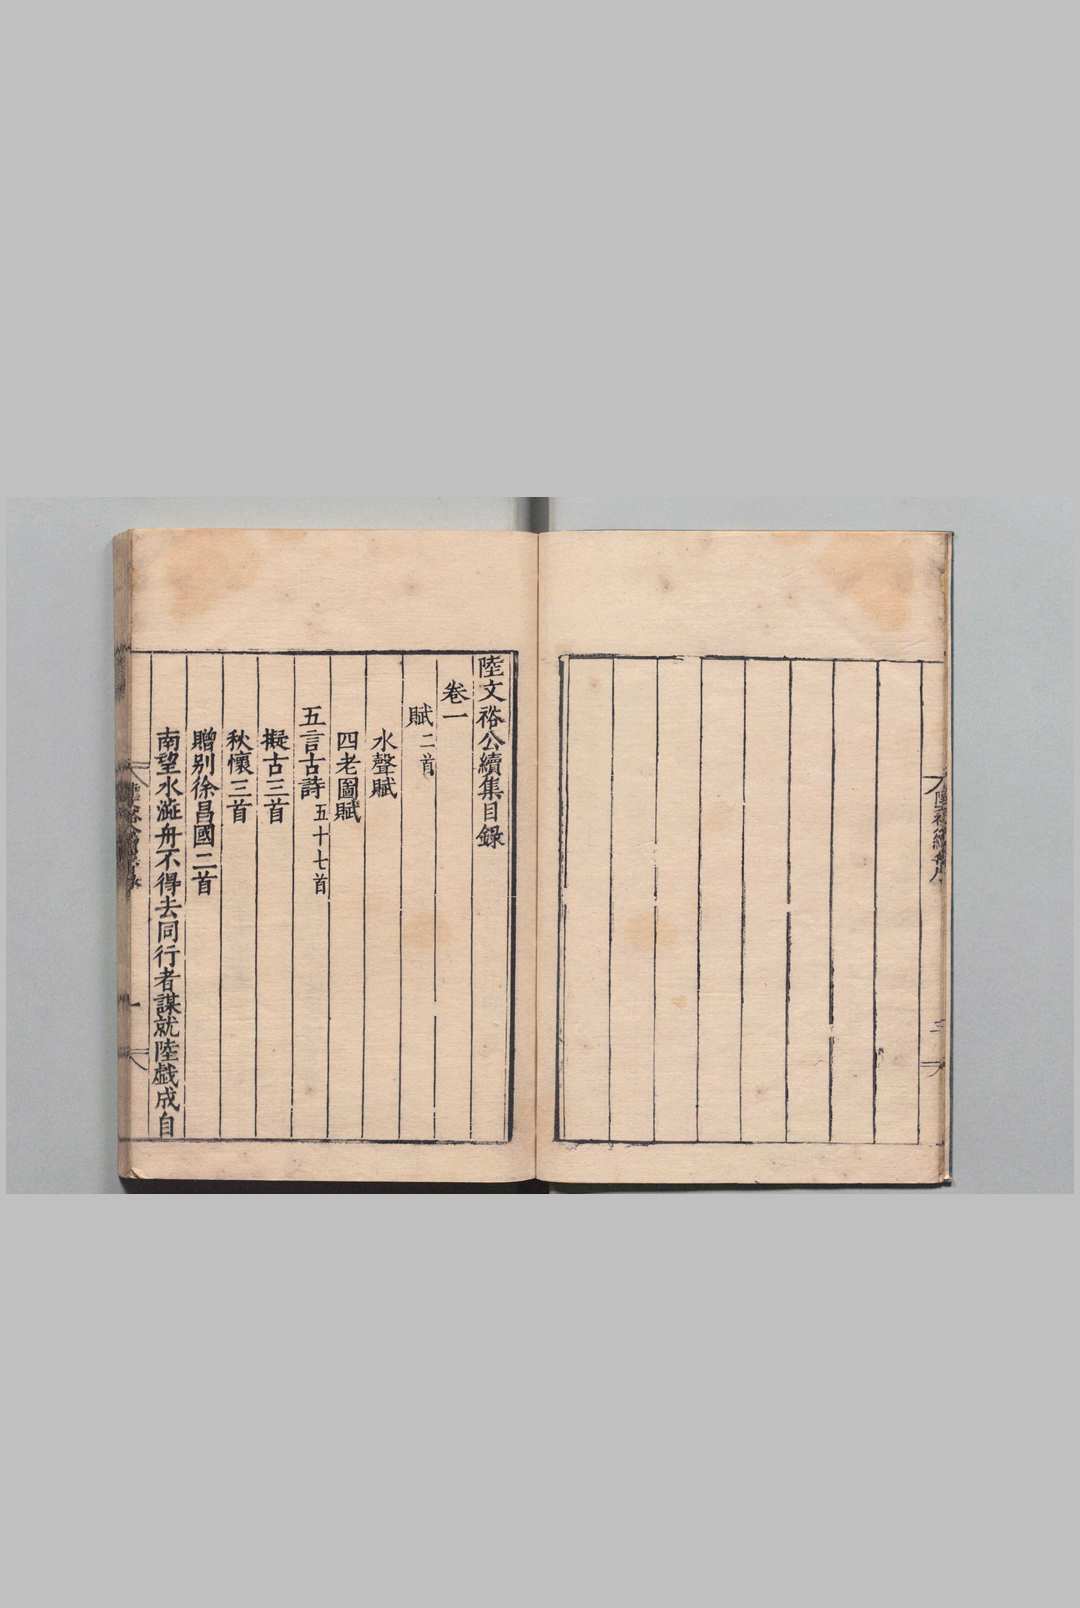 陸文裕公續集目録
卷一
賦二首
水聲賦
四老圖賦
五言古詩五十七首
擬古三首
秋懷三首
贈别徐昌國二首
南望水澁舟不得去同行者謀就陸戯成自